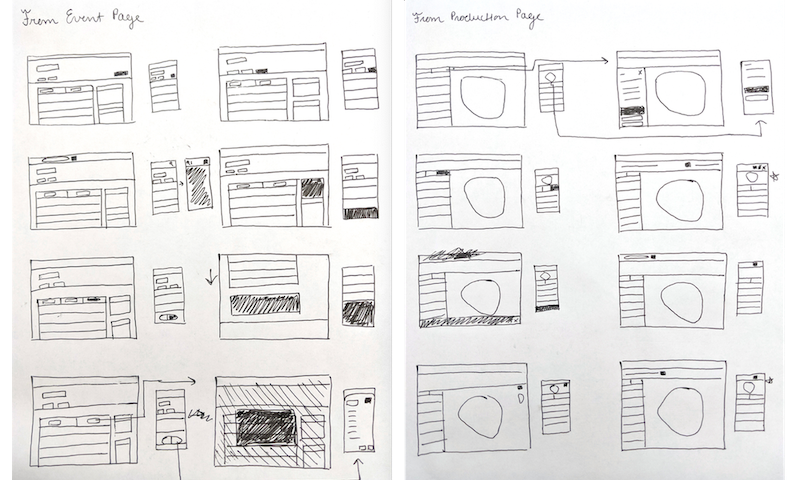 From Event Page
From Production Page